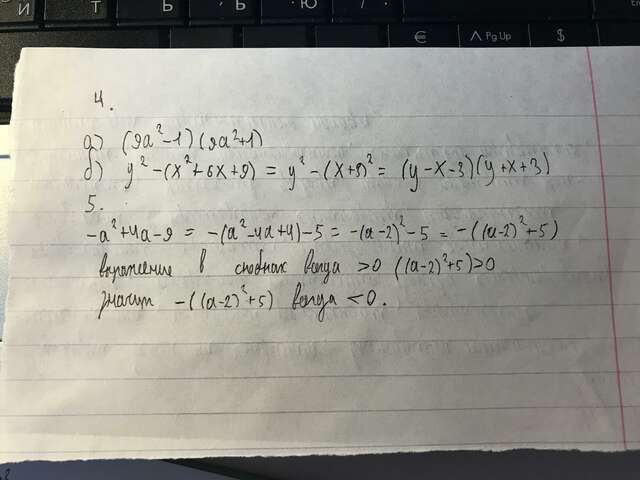 И Т Ь Б Ю
€ ∧ Pg Up $
4.
а) (9a²-1)(9a²+1)
б) y²-(x²+6x+9) = y²-(x+3)² = (y-x-3)(y+x+3)
5.
-a²+4a-9 = -(a²-4a+4)-5 = -(a-2)²-5 = -((a-2)²+5)
выражение в скобках всегда >0 ((a-2)²+5)>0
значит -((a-2)²+5) всегда <0.